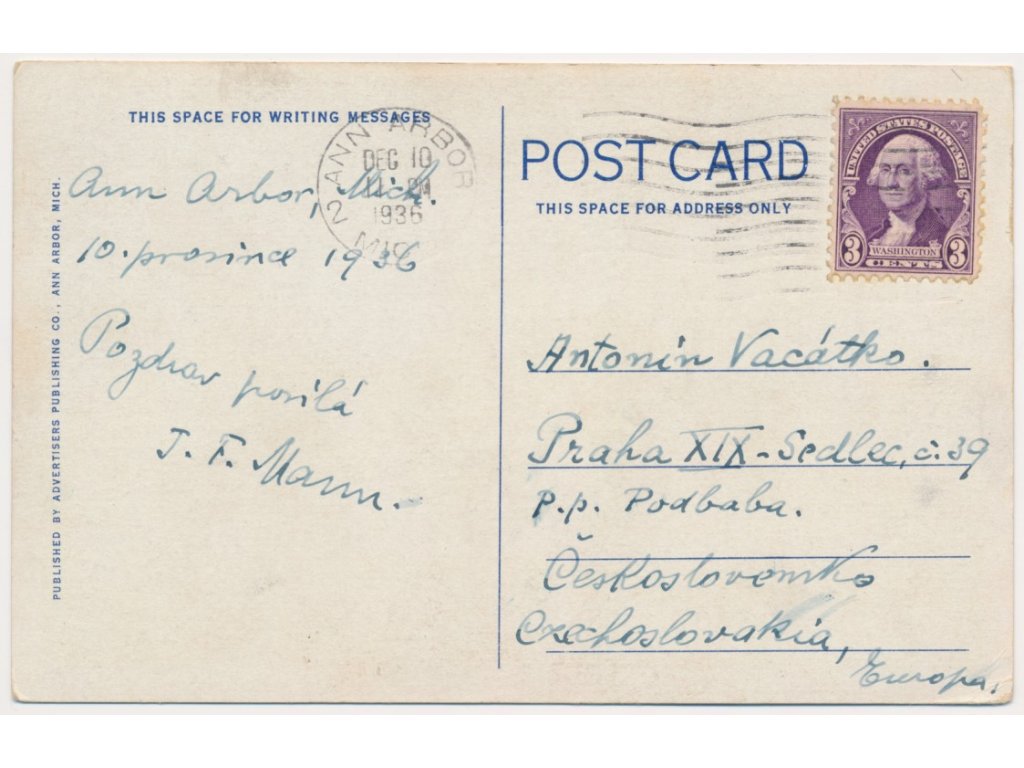 THIS SPACE FOR WRITING MESSAGES
Ann Arbor, Mich.
10. prosince 1936
Pozdrav posílá
J. F. Mann.
PUBLISHED BY ADVERTISERS PUBLISHING CO., ANN ARBOR, MICH.
ANN ARBOR
DEC 10
PM
1936
2 MICH
POST CARD
THIS SPACE FOR ADDRESS ONLY
UNITED STATES POSTAGE
WASHINGTON
3 CENTS 3
Antonín Vacátko.
Praha XIX - Sedlec, č. 39
p.p. Podbaba.
Československo
Czechoslovakia,
Europa.